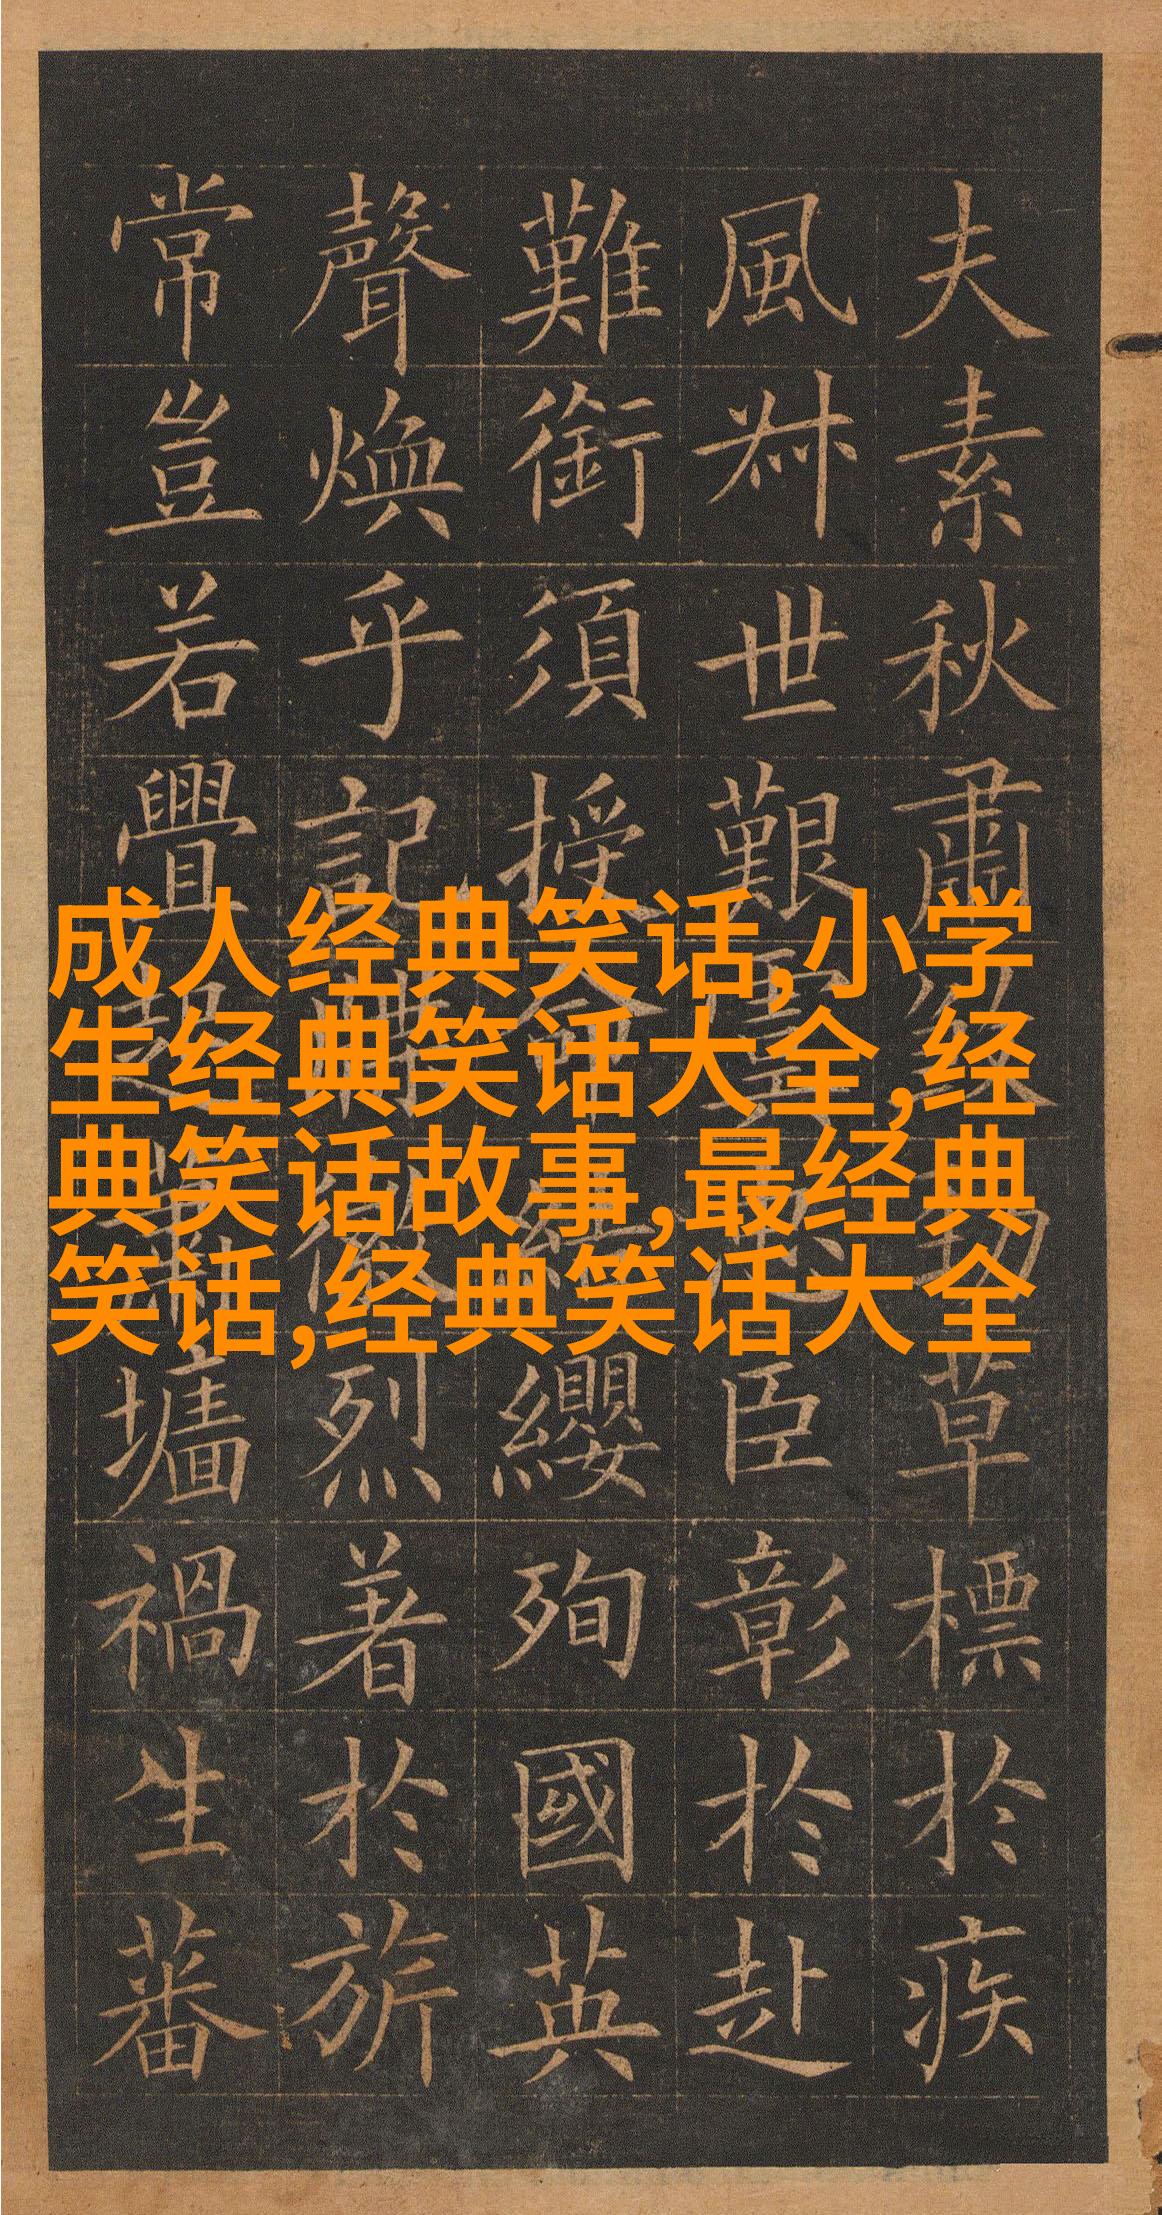 夫素秋肅勁草標於疾
風叔世艱虞臣彰於赴
難銜須授命結纓殉國英
聲煥乎記徽烈著於旂
常豈若舋起墻禍生蕃
成人经典笑话,小学
生经典笑话大全,经
典笑话故事,最经典
笑话,经典笑话大全